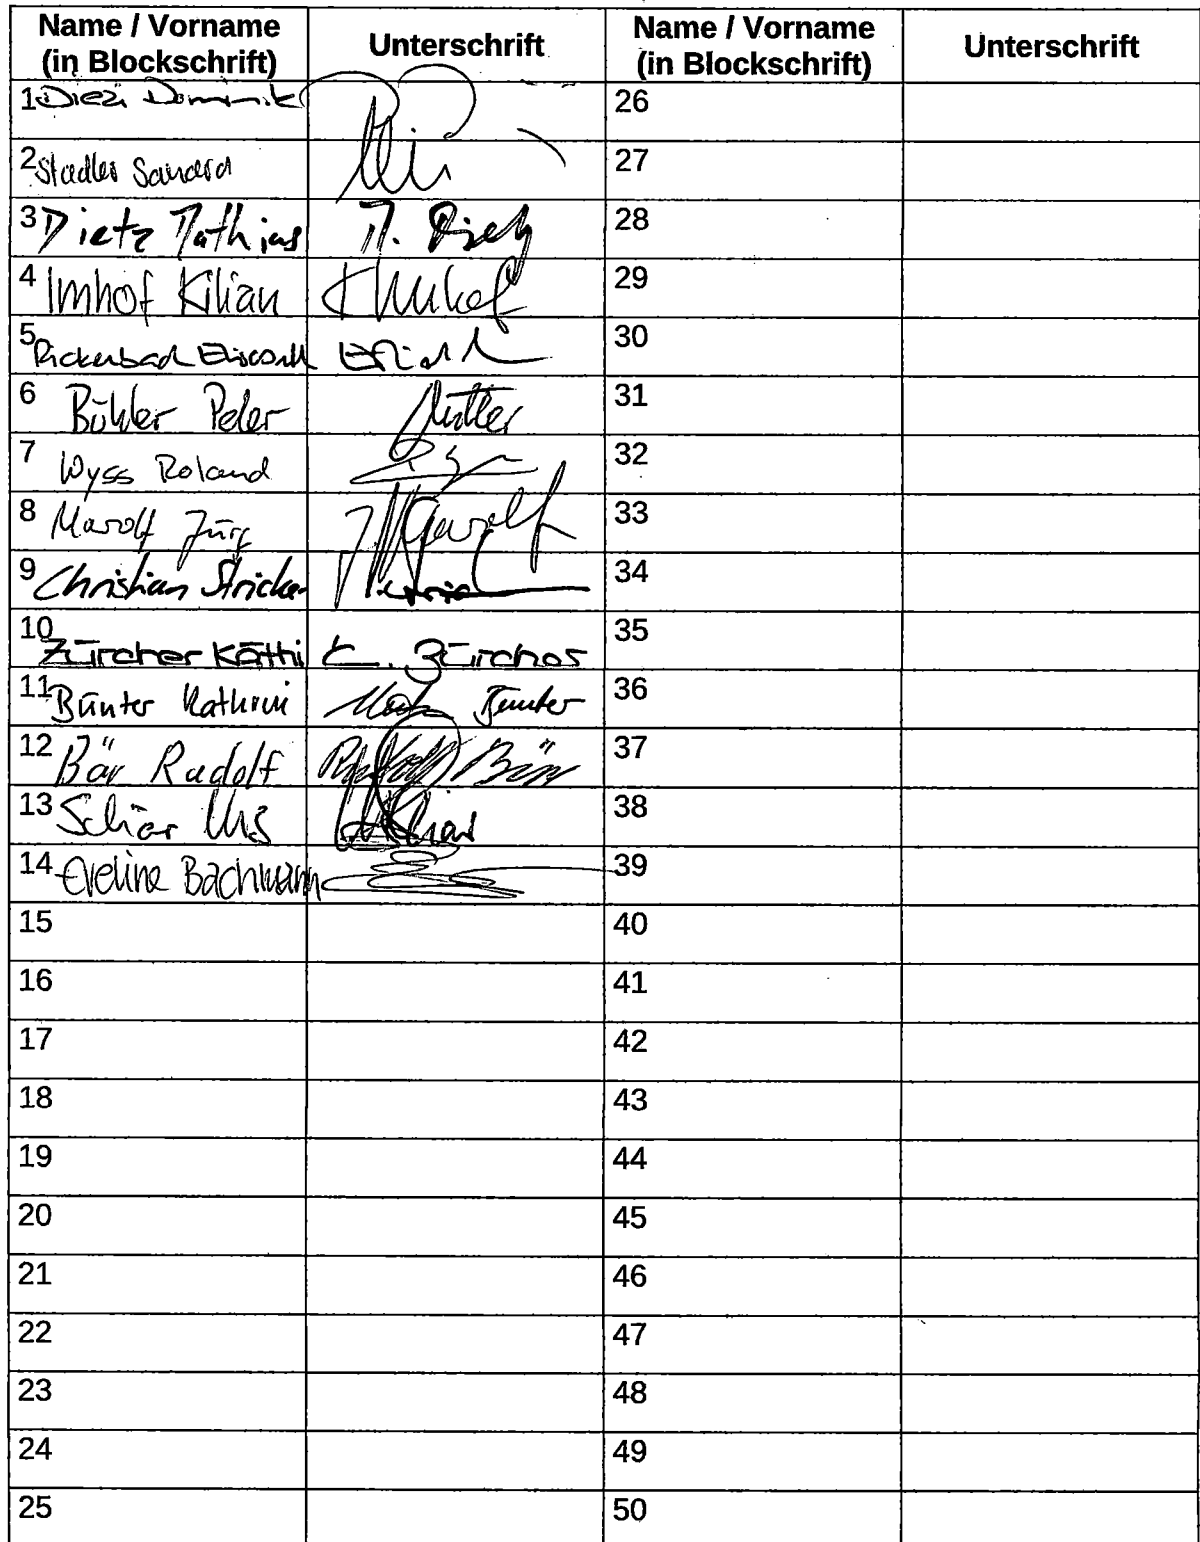 Name / Vorname
(in Blockschrift)
Unterschrift
Name / Vorname
(in Blockschrift)
Unterschrift
1 Diezi Dominik
26
2 Stadler
27
3 Dietz Mathias
28
4 Imhof Kilian
29
5
30
6 Bühler Peter
31
7 Wyss Roland
32
8 Marolf Jürg
33
9 Christian Stricker
34
10 Zürcher Käthi K. Zürcher
35
11 Bünter Kathrin
36
12 Bär Rudolf Rudolf Bär
37
13 Schär Urs
38
14 Eveline Bachmann
39
15
40
16
41
17
42
18
43
19
44
20
45
21
46
22
47
23
48
24
49
25
50